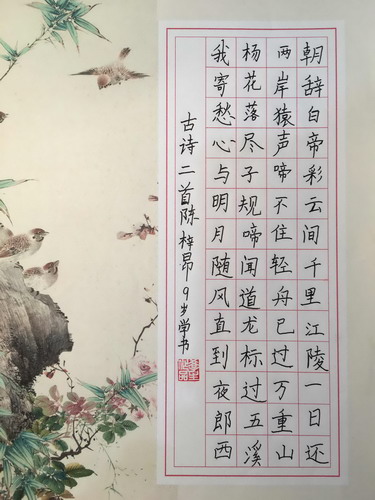 朝辞白帝彩云间千里江陵一日还
两岸猿声啼不住轻舟已过万重山
杨花落尽子规啼闻道龙标过五溪
我寄愁心与明月随风直到夜郎西
古诗二首陈梓昂9岁学书